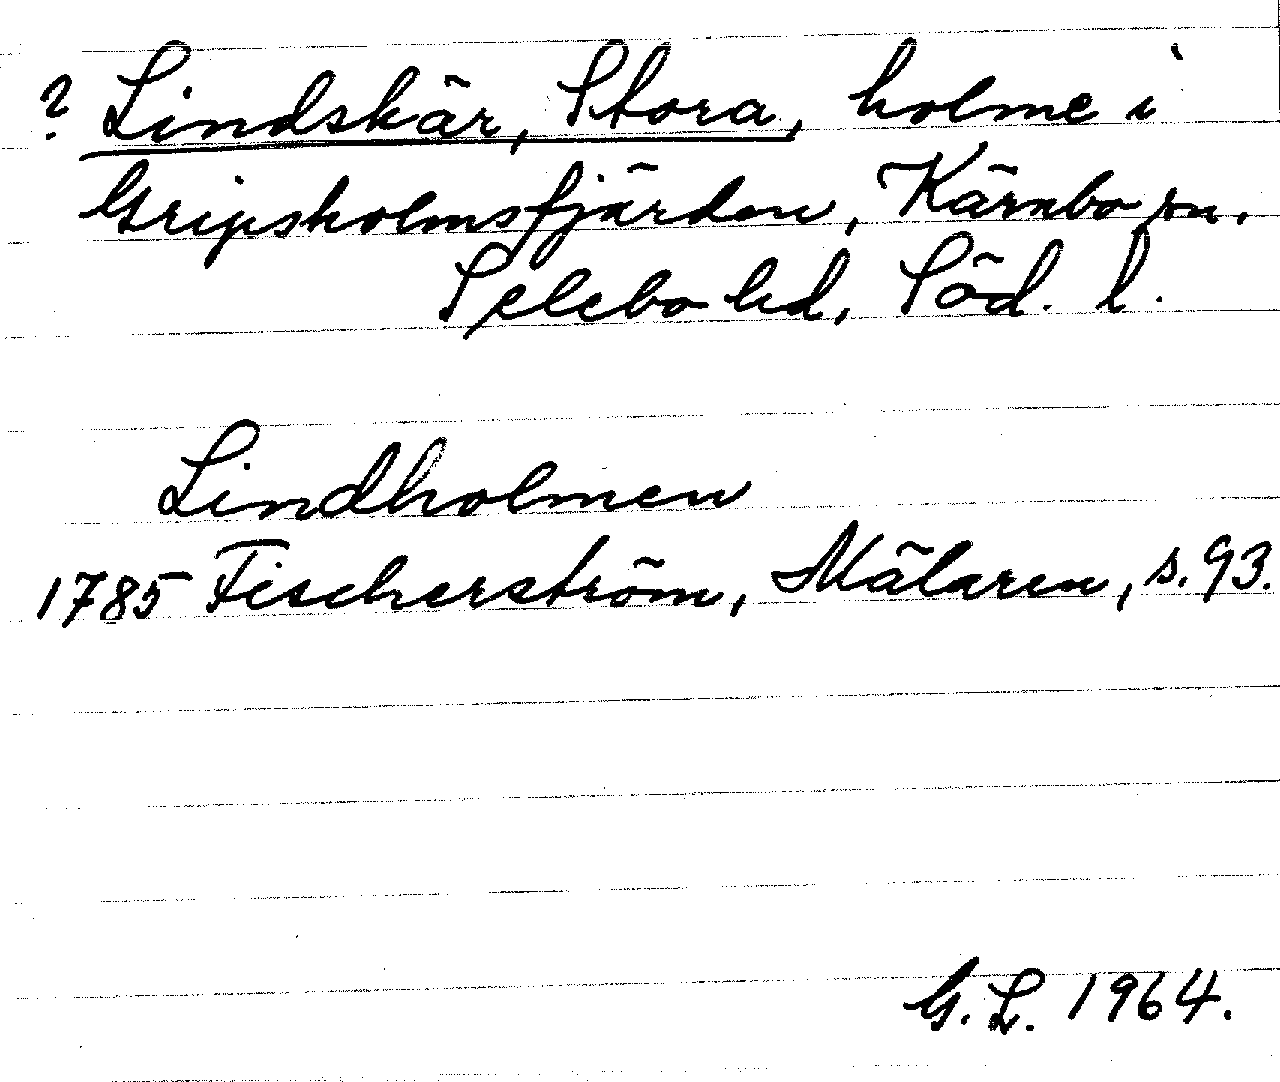 ? Lindskär, Stora, holme i
Gripsholmsfjärden, Kärnbo sn.
Selebo hd, Söd. l.
Lindholmen
1785 Fischerström, Mälaren, s. 93.
G. L. 1964.